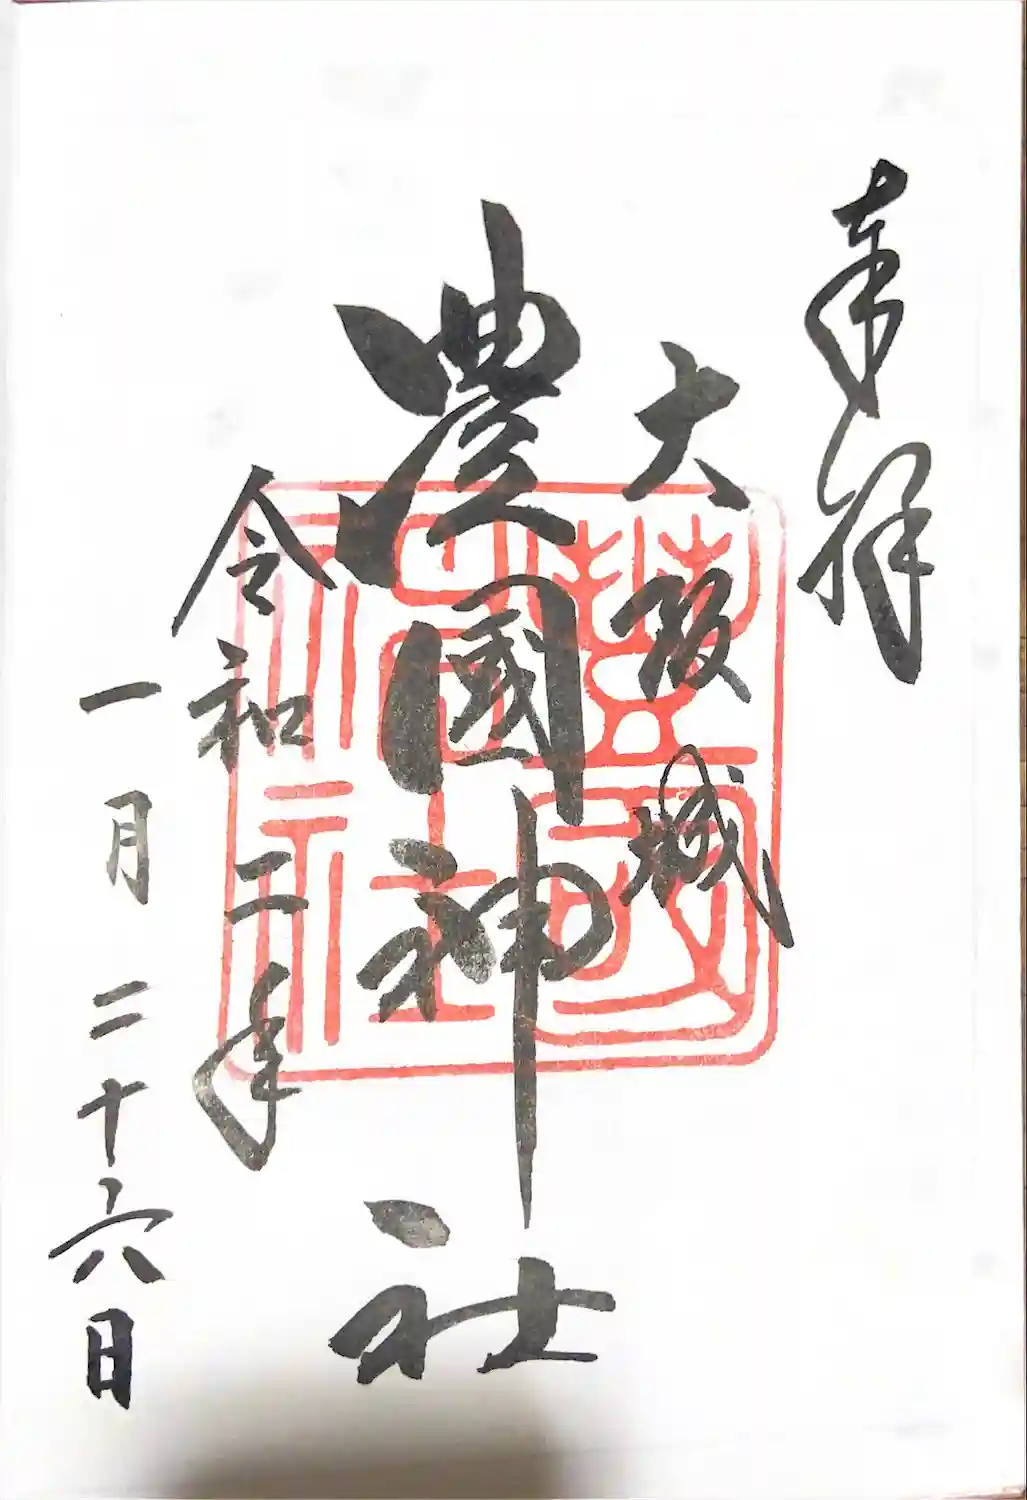 奉拝
大阪城
豊國神社
令和二年
一月二十六日
豐國神社